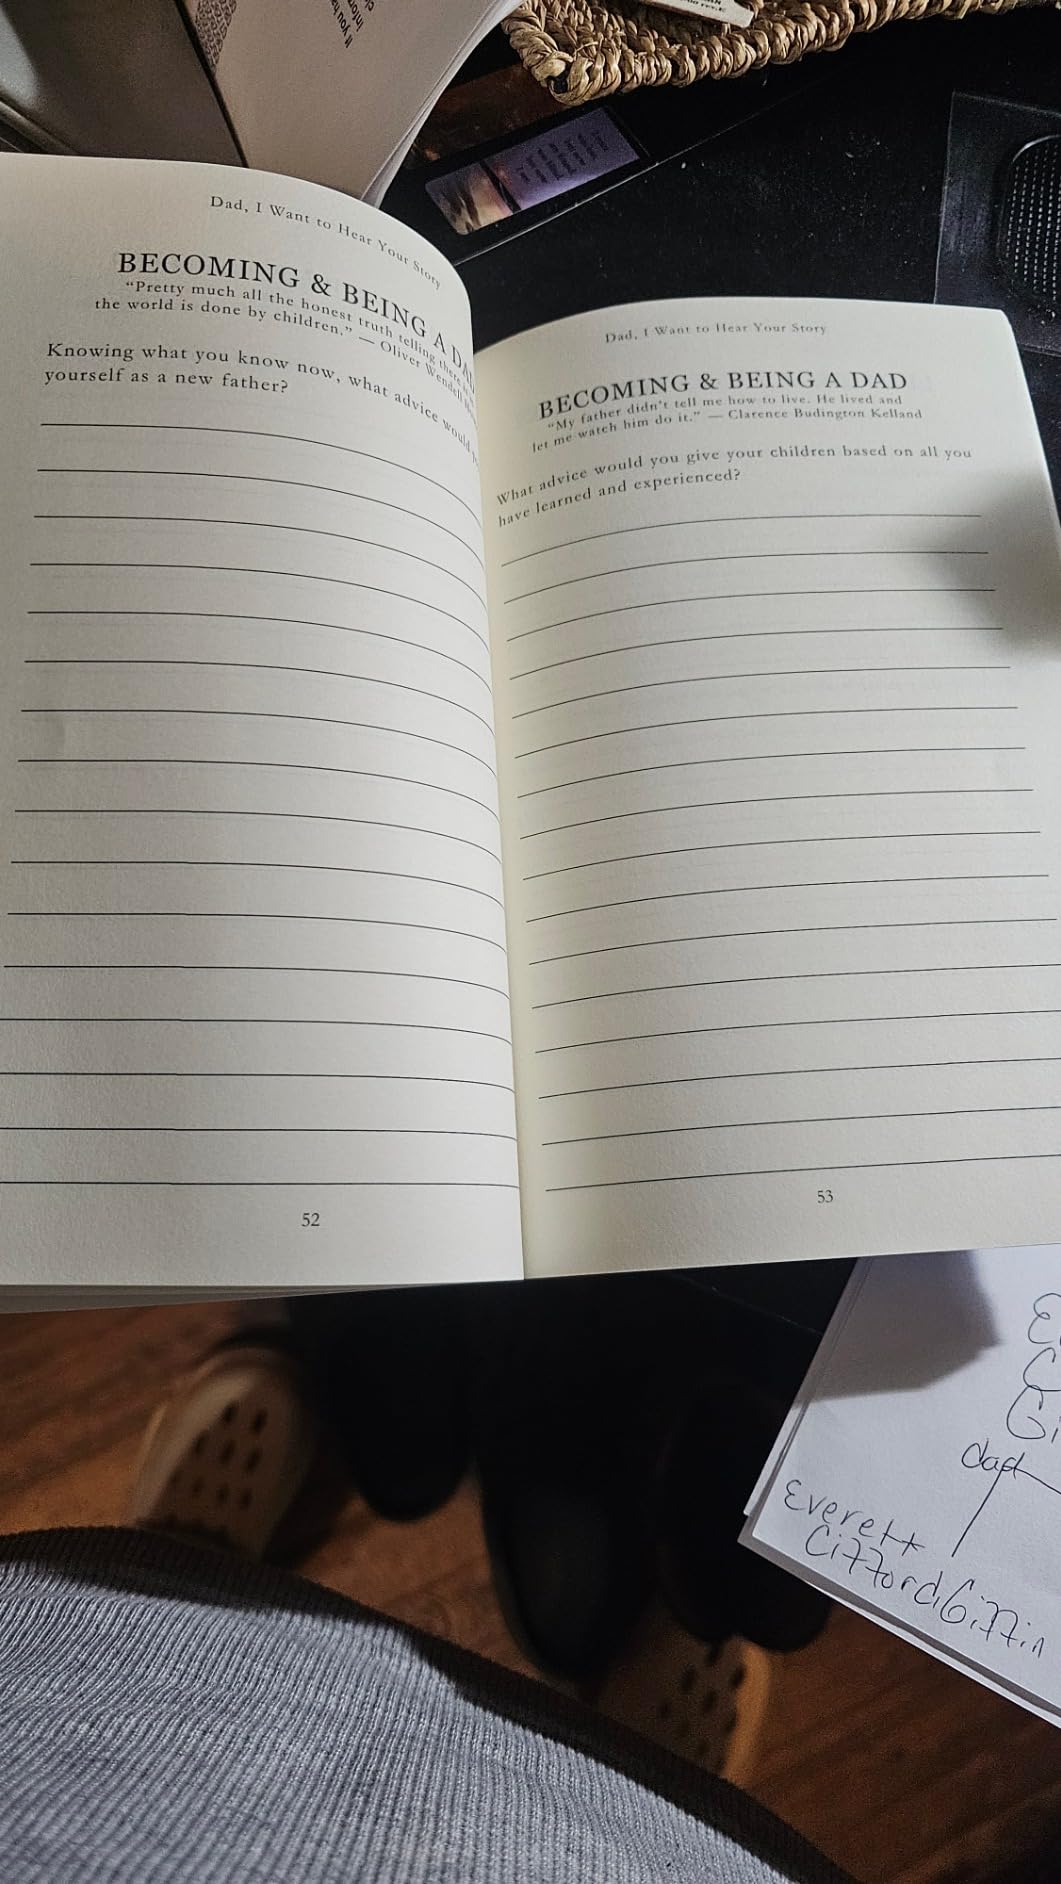 If you ha
Dad, I Want to Hear Your Story
BECOMING & BEING A DAD
"Pretty much all the honest truth telling there is in
the world is done by children." — Oliver Wendell
Knowing what you know now, what advice would
yourself as a new father?
52
Dad, I Want to Hear Your Story
BECOMING & BEING A DAD
"My father didn't tell me how to live. He lived and
let me watch him do it." — Clarence Budington Kelland
What advice would you give your children based on all you
have learned and experienced?
53
Everett
Gifford Giffin